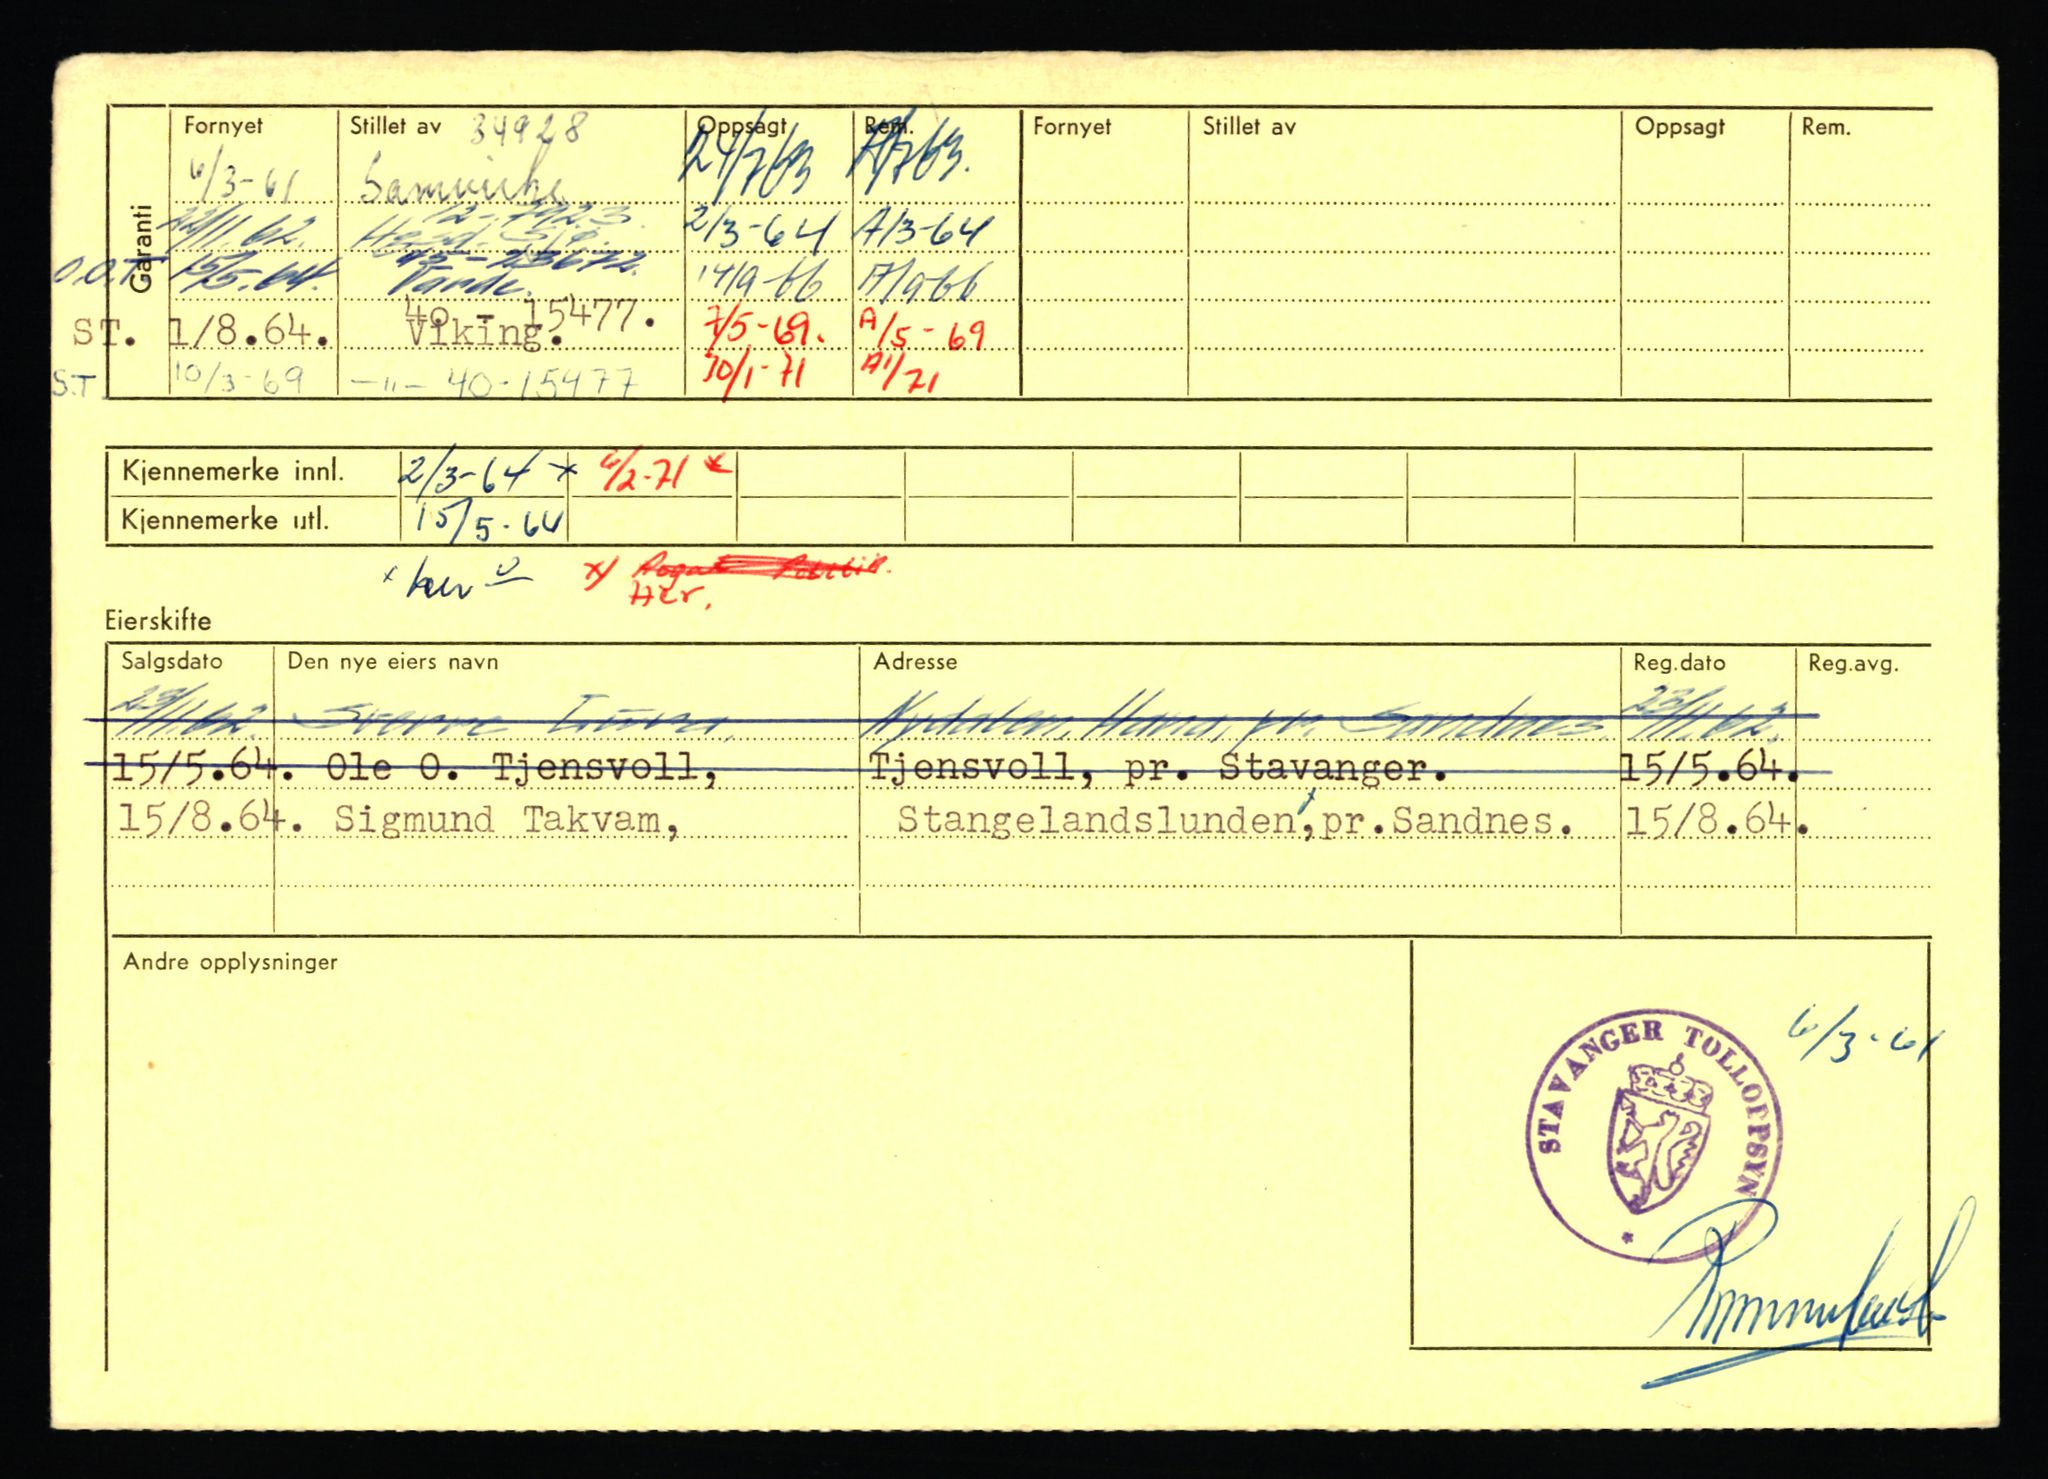 Garanti
Fornyet Stillet av 34928 Oppsagt Rem. Fornyet Stillet av Oppsagt Rem.
6/3-61 Samvirke 24/763 A/763.
22/11.62. 2/3-64 A/3-64
O.O.T 15/5.64. 45-23672. Varde. 14/9-66 A/9-66
ST. 1/8.64. 40 - 15477. Viking. 7/5-69. A/5-69
S.T. 10/3-69 —"— 40-15477 30/1-71 A1/71
Kjennemerke innl. 2/3-64 x 4/2-71 x
Kjennemerke utl. 15/5-64
x her x)
Her.
Eierskifte
Salgsdato Den nye eiers navn Adresse Reg.dato Reg.avg.
23/11.62. Sverre Nydalen, Hana, pr. Sandnes. 23/11.62.
15/5.64. Ole O. Tjensvoll, Tjensvoll, pr. Stavanger. 15/5.64.
15/8.64. Sigmund Takvam, Stangelandslunden, pr.Sandnes. 15/8.64.
Andre opplysninger
6/3-61
STAVANGER TOLLOPPSYN
*